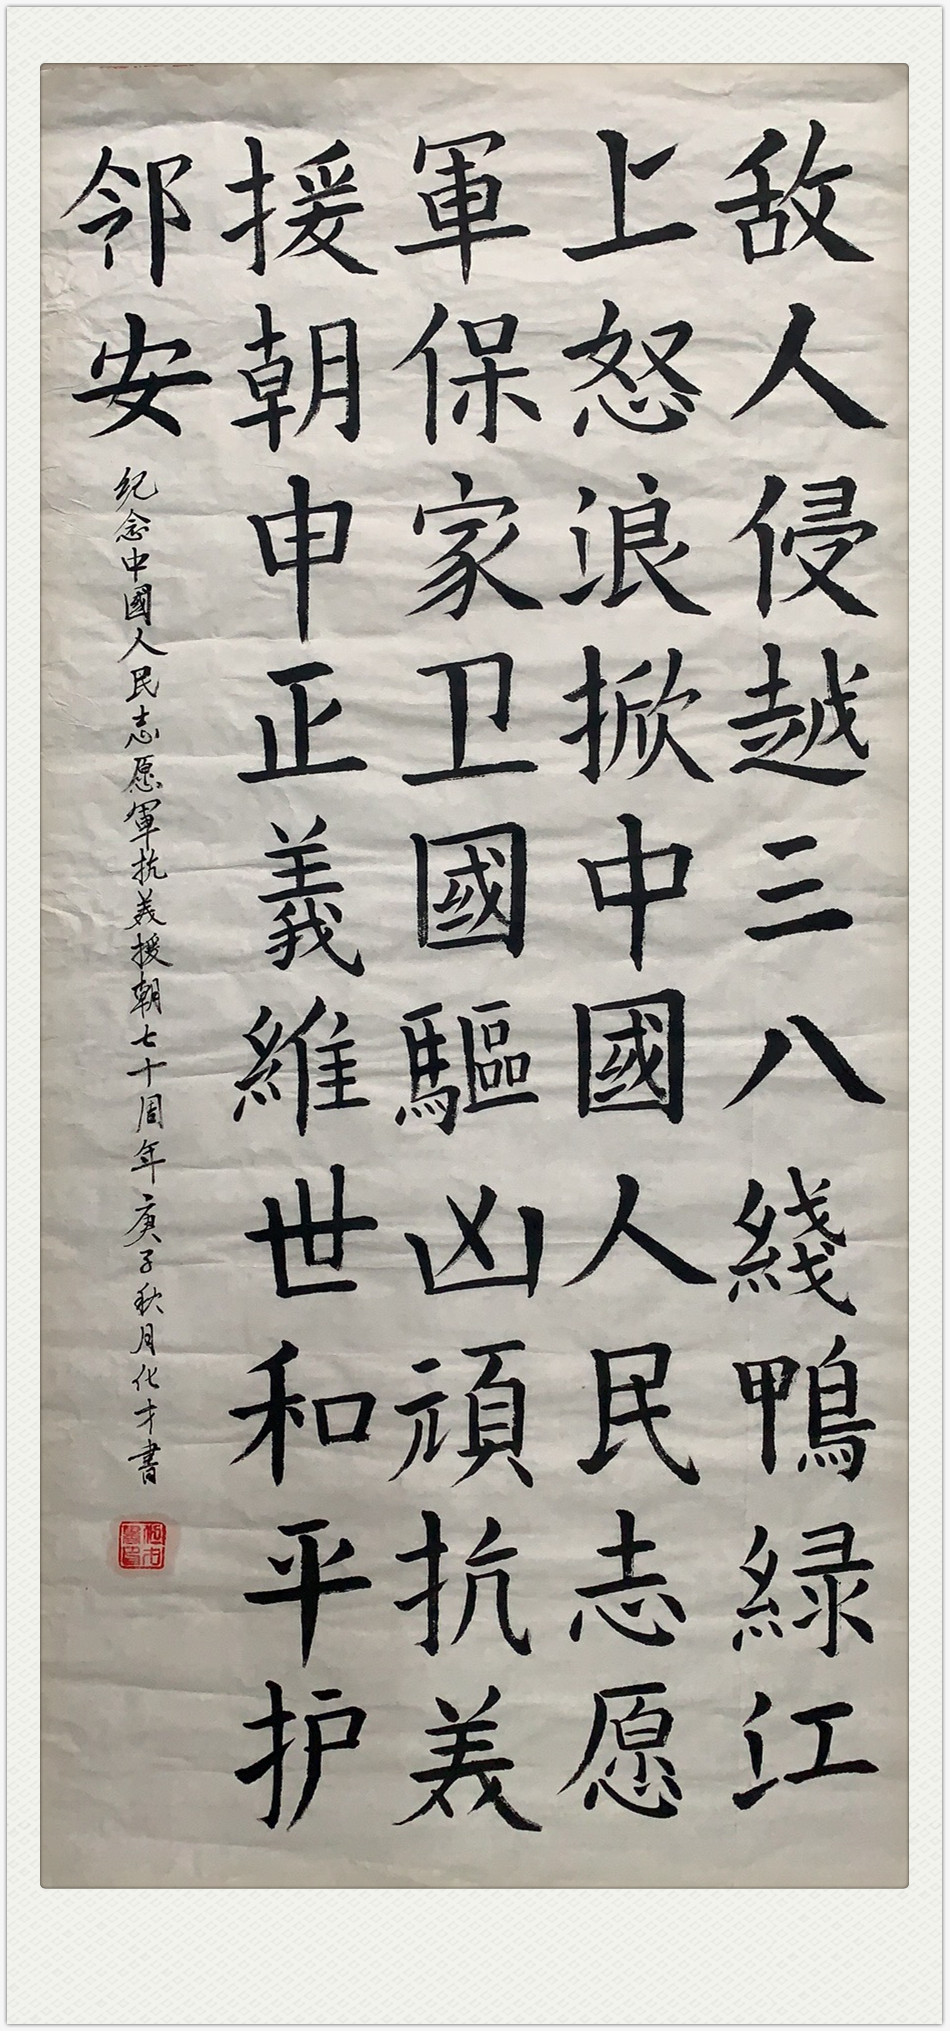 敌人侵越三八綫鴨緑江
上怒浪掀中國人民志愿
軍保家卫國驅凶頑抗美
援朝申正義維世和平护
邻安
纪念中國人民志愿軍抗美援朝七十周年庚子秋月化才書